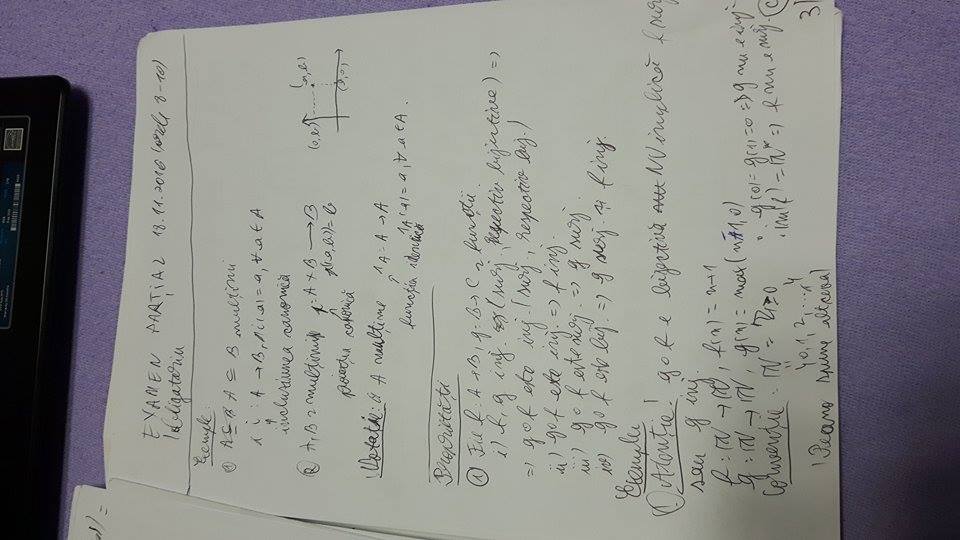 EXAMEN PARȚIAL 18.11.2016 (orele 8-10)
! Obligatoriu
Exemple
① A ⊆ B mulțimi
i : A → B, i(a) = a, ∀ a ∈ A
incluziunea canonică
② A, B 2 mulțimi p: A × B → B
p((a,b)) = b
proiecția canonică
(0,b) (a,b)
(a,0)
Notație: A mulțime 1A = A → A
1A(a) = a, ∀ a ∈ A.
funcția identică
Proprietăți
① Fie f: A → B, g: B → C 2 funcții
i) f, g inj. (surj., respectiv bijective) =>
=> g o f este inj. (surj., respectiv bij.)
ii) g o f este inj => f inj.
iii) g o f este surj => g surj
iv) g o f este bij => g surj. și f inj.
Exemple
① Atenție! g o f e bijectivă NU implică f surj
sau g inj.
f: N → N, f(n) = n+1
g: N → N, g(n) = max(n-1, 0)
g(0) = g(1) = 0 => g nu e inj
Im(f) = N* => f nu e surj.
Convenție: N = Z≥0
{0, 1, 2, ...}
! Peano spune altceva!
3|
) =